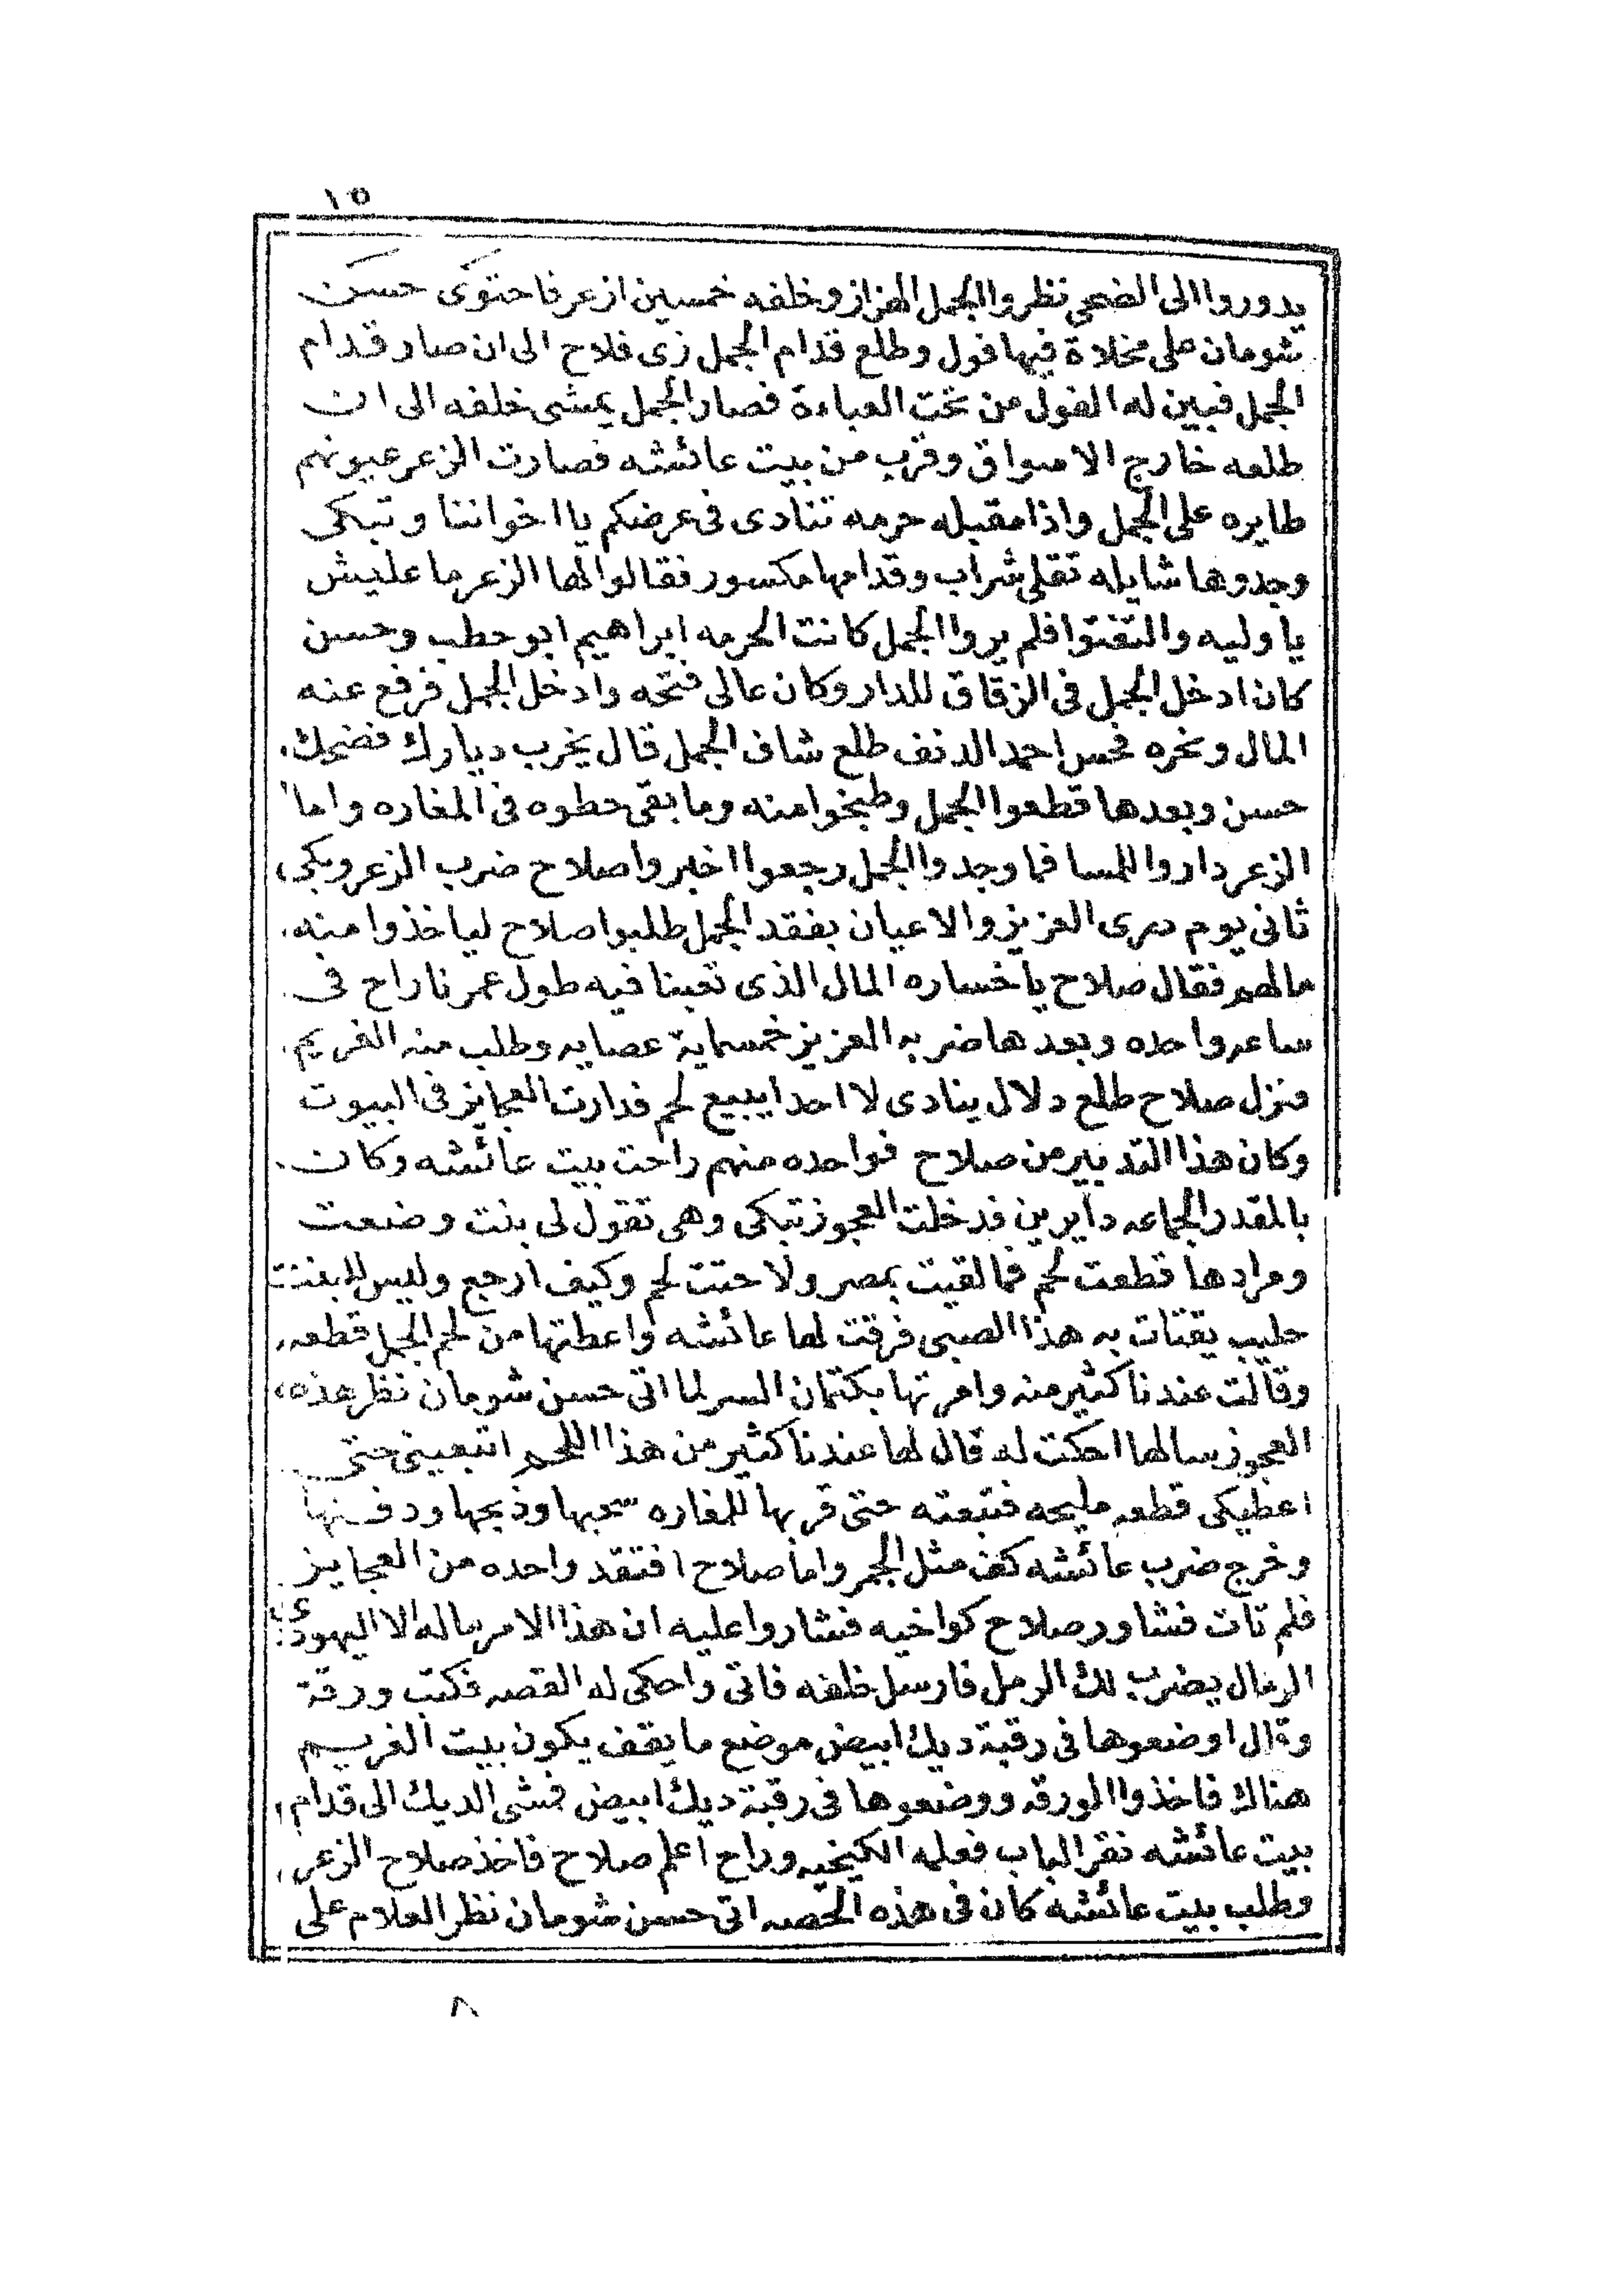 ١٥
يدوروا الى الضحى نظروا الجمل الهزاز وخلفه خمسين ازعر فاحتوى حسن
شومان على مخلاة فيها فول وطلع قدام الجمل زى فلاح الى ان صار قدام
الجمل فبين له الفول من تحت العباءة فصار الجمل يمشى خلفه الى ان
طلعه خارج الاسواق وقرب من بيت عائشه فصارت الزعر عيونهم
طايره على الجمل واذا مقبله حرمه تنادى فى عرضكم يا اخواننا وتبكى
وجدوها شايله تقلى شراب وقدامها مكسور فقالوا لها الزعر ما عليش
يا وليه والتفتوا فلم يروا الجمل كانت الحرمه ابراهيم ابو حطب وحسن
كان ادخل الجمل فى الزقاق للدار وكان عالى فتحه وادخل الجمل فرفع عنه
المال ونحره فحس احمد الدنف طلع شاف الجمل قال يخرب ديارك فضحك
حسن وبعدها قطعوا الجمل وطبخوا منه وما بقى حطوه فى المغاره واما
الزعر داروا للمسا فما وجدوا الجمل رجعوا اخبروا صلاح ضرب الزعر وبكى
ثانى يوم درى العزيز والاعيان بفقد الجمل طلبوا صلاح لياخذوا منه
مالهم فقال صلاح يا خساره المال الذى تعبنا فيه طول عمرنا راح فى
ساعه واحده وبعدها ضربه العزيز خمسماية عصايه وطلب منه الغريم
فنزل صلاح طلع دلال ينادى لا احدا يبيع لحم فدارت العجايز فى البيوت
وكان هذا التدبير من صلاح فواحده منهم راحت بيت عائشه وكان
بالمقدر الجماعه دايرين فدخلت العجوز تبكى وهى تقول لى بنت وضعت
ومرادها قطعت لحم فما لقيت بمصر ولا حتت لحم وكيف ارجع وليس للبنت
حليب يقتات به هذا الصبى فرقت لها عائشه واعطتها من لحم الجمل قطعه
وقالت عندنا كثير منه وامرتها بكتمان السر لما اتى حسن شومان نظر هذه
العجوز سالها احكت له قال لها عندنا كثير من هذا اللحم اتبعينى حتى
اعطيكى قطعه مليحه فتبعته حتى قربها للمغاره سحبها وذبحها ودفنها
وخرج ضرب عائشه كف مثل الجمر واما صلاح افتقد واحده من العجايز
فلم تات فشاور صلاح كواخيه فشاروا عليه ان هذا الامر ماله الا اليهودى
الرمال يضرب لك الرمل فارسل خلفه فاتى واحكى له القصه فكتب ورقة
وقال اوضعوها فى رقبة ديك ابيض موضع ما يقف يكون بيت الغريم
هناك فاخذوا الورقه ووضعوها فى رقبة ديك ابيض فمشى الديك الى قدام
بيت عائشه نقر الباب فعلمه الكيخيه وراح اعلم صلاح فاخذ صلاح الزعر
وطلب بيت عائشه كان فى هذه الحصه اتى حسن شومان نظر العلام على
٨